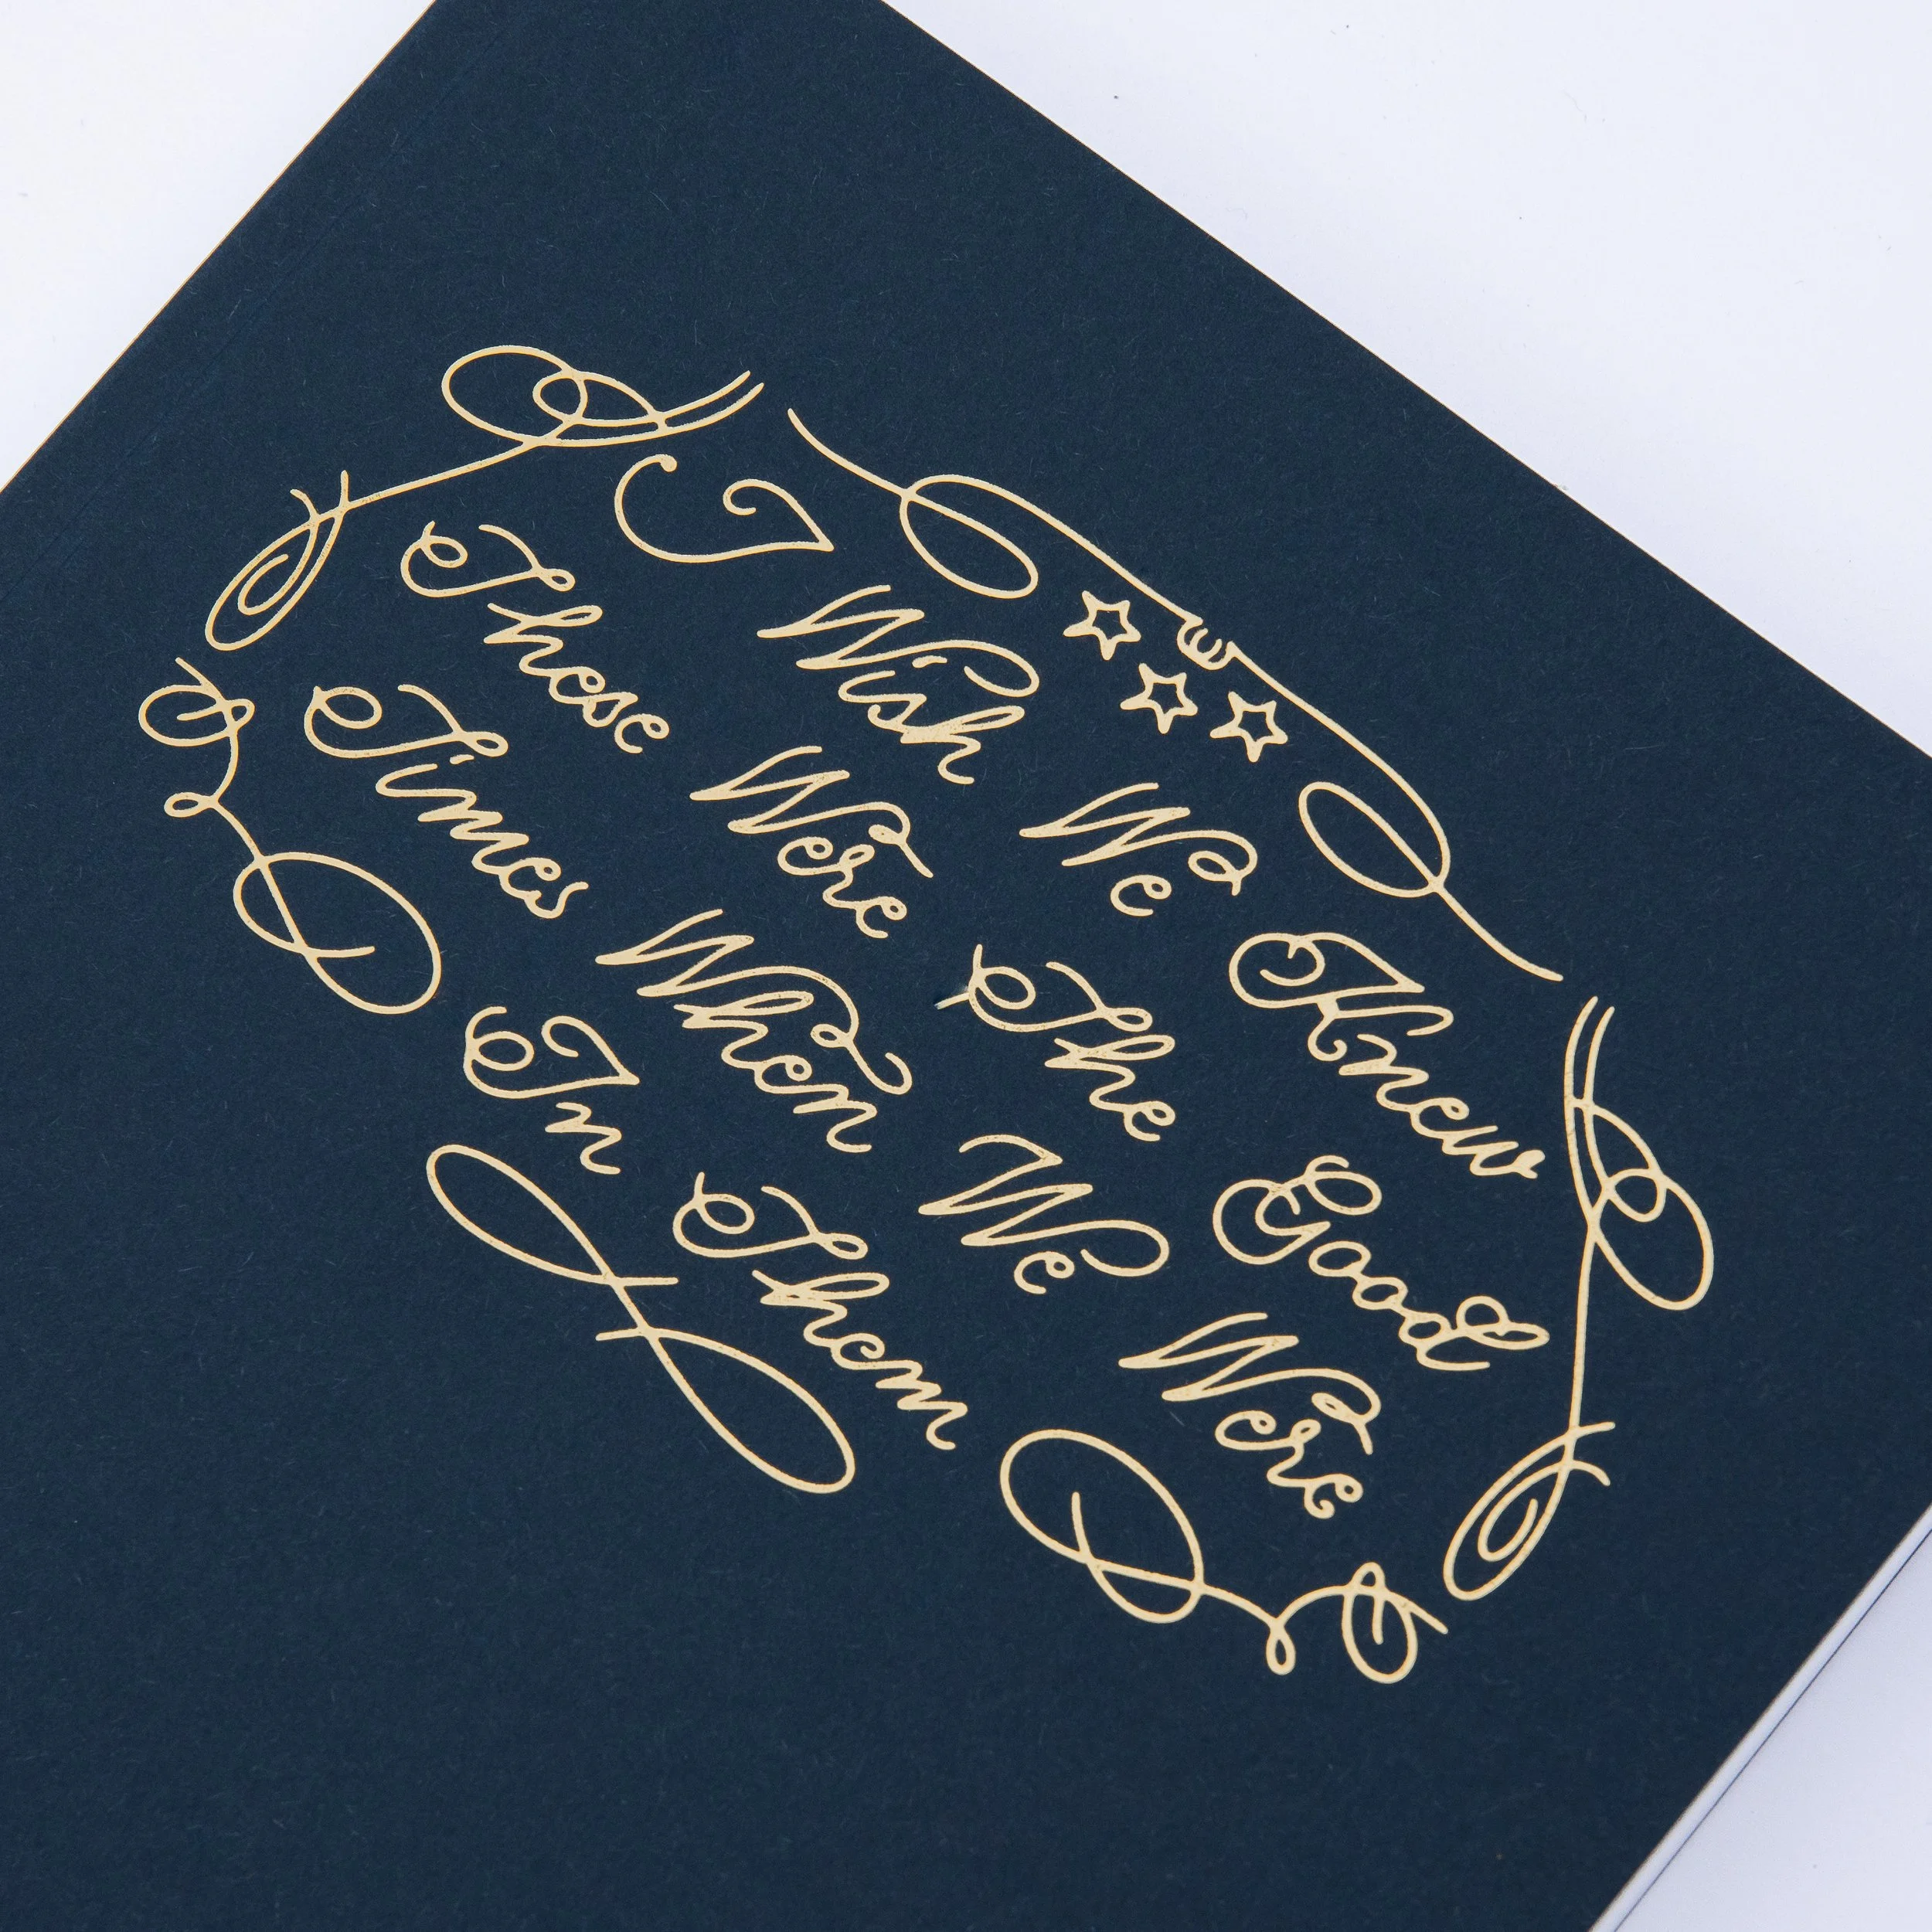 I Wish We Knew
These Were The Good
Times When We Were
In Them